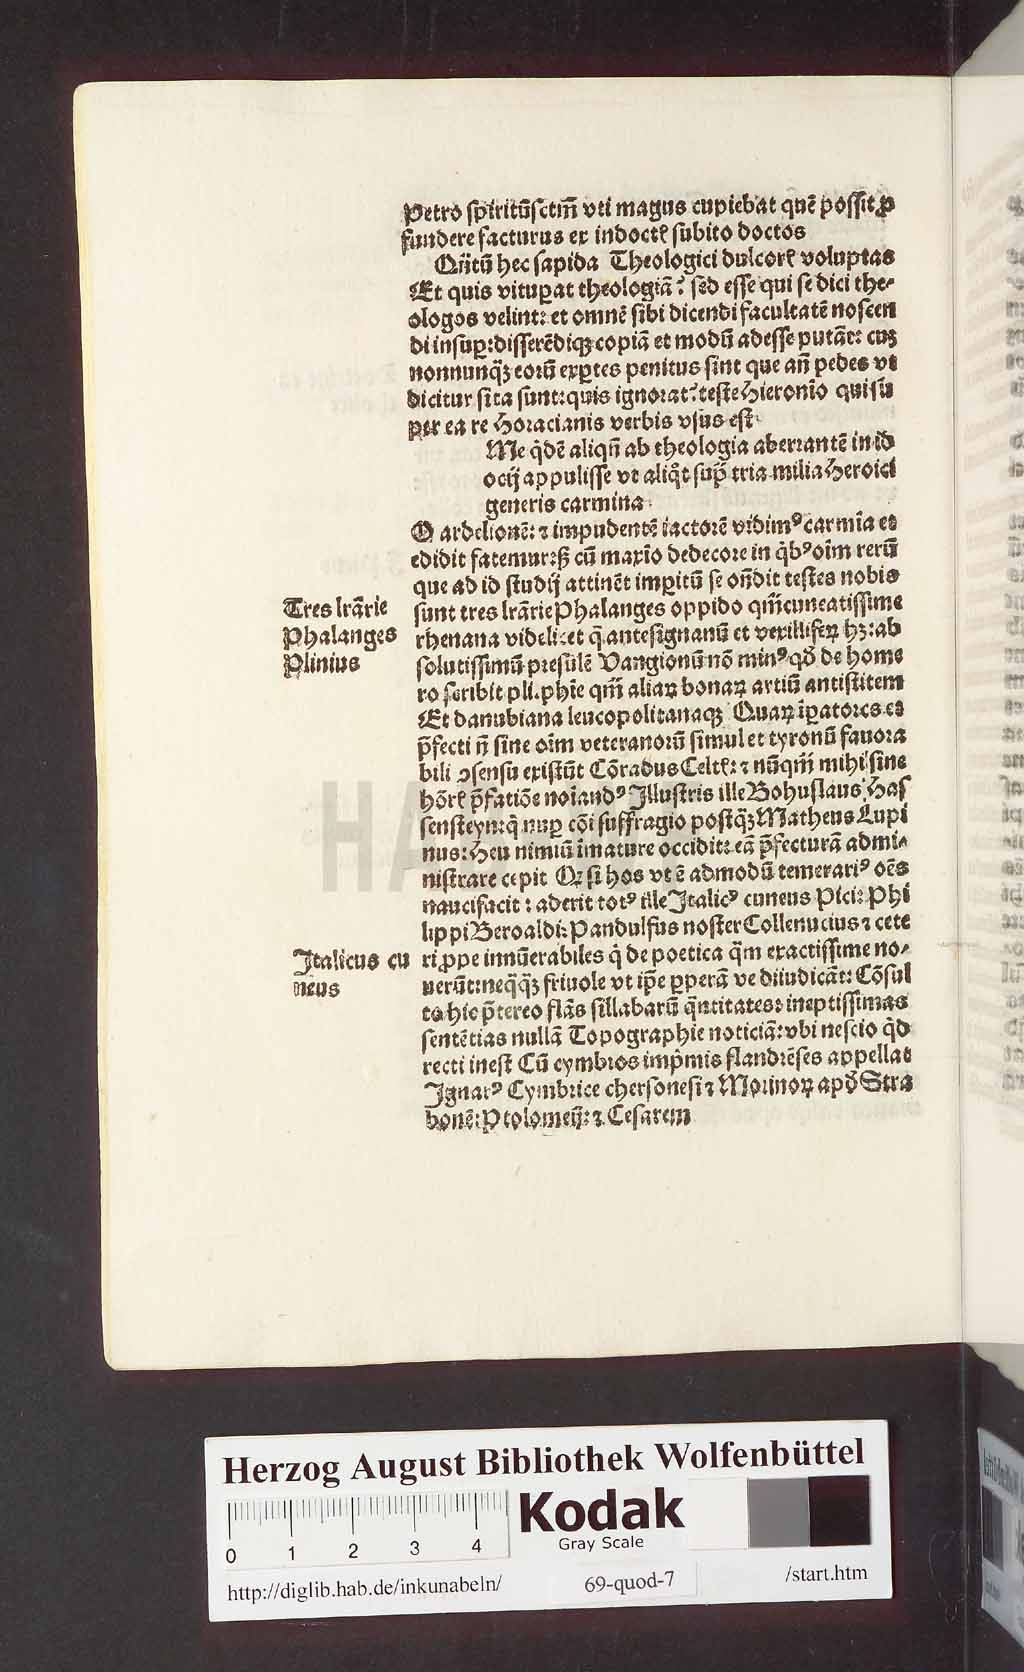 Petro spiritūsctm̄ vti magus cupiebat quē possit ꝓ
fundere facturus ex indoctꝭ subito doctos
Qn̄tū hec sapida Theologici dulcorꝭ voluptas
Et quis vituꝑat theologiā? sed esse qui se dici the-
ologos velint: et omnē sibi dicendi facultatē noscen
di insuꝑ: disserēdiqꝫ copiā et modū adesse putāt: cuꝫ
nonnunqꝫ eorū exꝑtes penitus sint que an̄ pedes vt
dicitur sita sunt: quis ignorat? teste Hieronīo qui sū
per ea re Horacianis verbis vsus est.
Me q̇dē aliqn̄ ab theologia aberrantē in id
ocij appulisse vt aliq̇t sup̄ tria milia Heroici
generis carmina.
O ardelionē: ⁊ impudentē iactorē vidimꝰ carmīa et
edidit fatemur: sꝫ cū maxīo dedecore in q̇bꝰ oīm rerū
que ad id studij attinēt imꝑitū se on̄dit testes nobis
Tres lrārie
Phalanges
Plinius
sunt tres lrārie Phalanges oppido qm̄cuneatissime
rhenana videlicet q̄ antesignanū et vexilliferꝝ hꝫ: ab
solutissimū presulē Vangionū nō minꝰ qđ de home
ro scribit pli. phie qm̄ aliaꝝ bonaꝝ artiū antistitem
Et danubiana leucopolitanaqꝫ Quaꝝ īpatores et
p̄fecti n̄ sine oīm veteranorū simul et tyronū fauora
bili ꝯsensu existūt Cōradus Celtꝭ: ⁊ nūqm̄ mihi sine
hōrꝭ p̄fatiōe noiandꝰ Illustris ille Bohuslaus Has
sensteyn: q̇ nuꝑ cōi suffragio postqꝫ Matheus Lupi
nus: Heu nimiū īmature occidit: eā p̄fecturā admi-
nistrare cepit Qꝫ si hos vt ē admodū temerariꝰ oēs
naucifacit: aderit totꝰ ille Italicꝰ cuneus Pici: Phi
lippi Beroaldi: Pandulfus noster Collenucius ⁊ cete
Italicus cu
neus
ri ꝓpe innūerabiles q̇ de poetica q̄m exactissime no-
uerūt: neqꝗꝫ friuole vt ip̄e ꝑperā ve diiudicāt: Cōsul
to hic p̄tereo flās sillabarū q̄ntitates: ineptissimas
sentētias nullā Topographie noticiā: vbi nescio q̇d
recti inest Cū cymbros imp̄mis flandrēses appellat
Ignarꝰ Cymbrice chersonesi ⁊ Morinoꝝ apđ Stra
bonē: Ptolomeū: ⁊ Cesarem
HAB
Herzog August Bibliothek Wolfenbüttel
0 1 2 3 4
Kodak
Gray Scale
http://diglib.hab.de/inkunabeln/ 69-quod-7 /start.htm